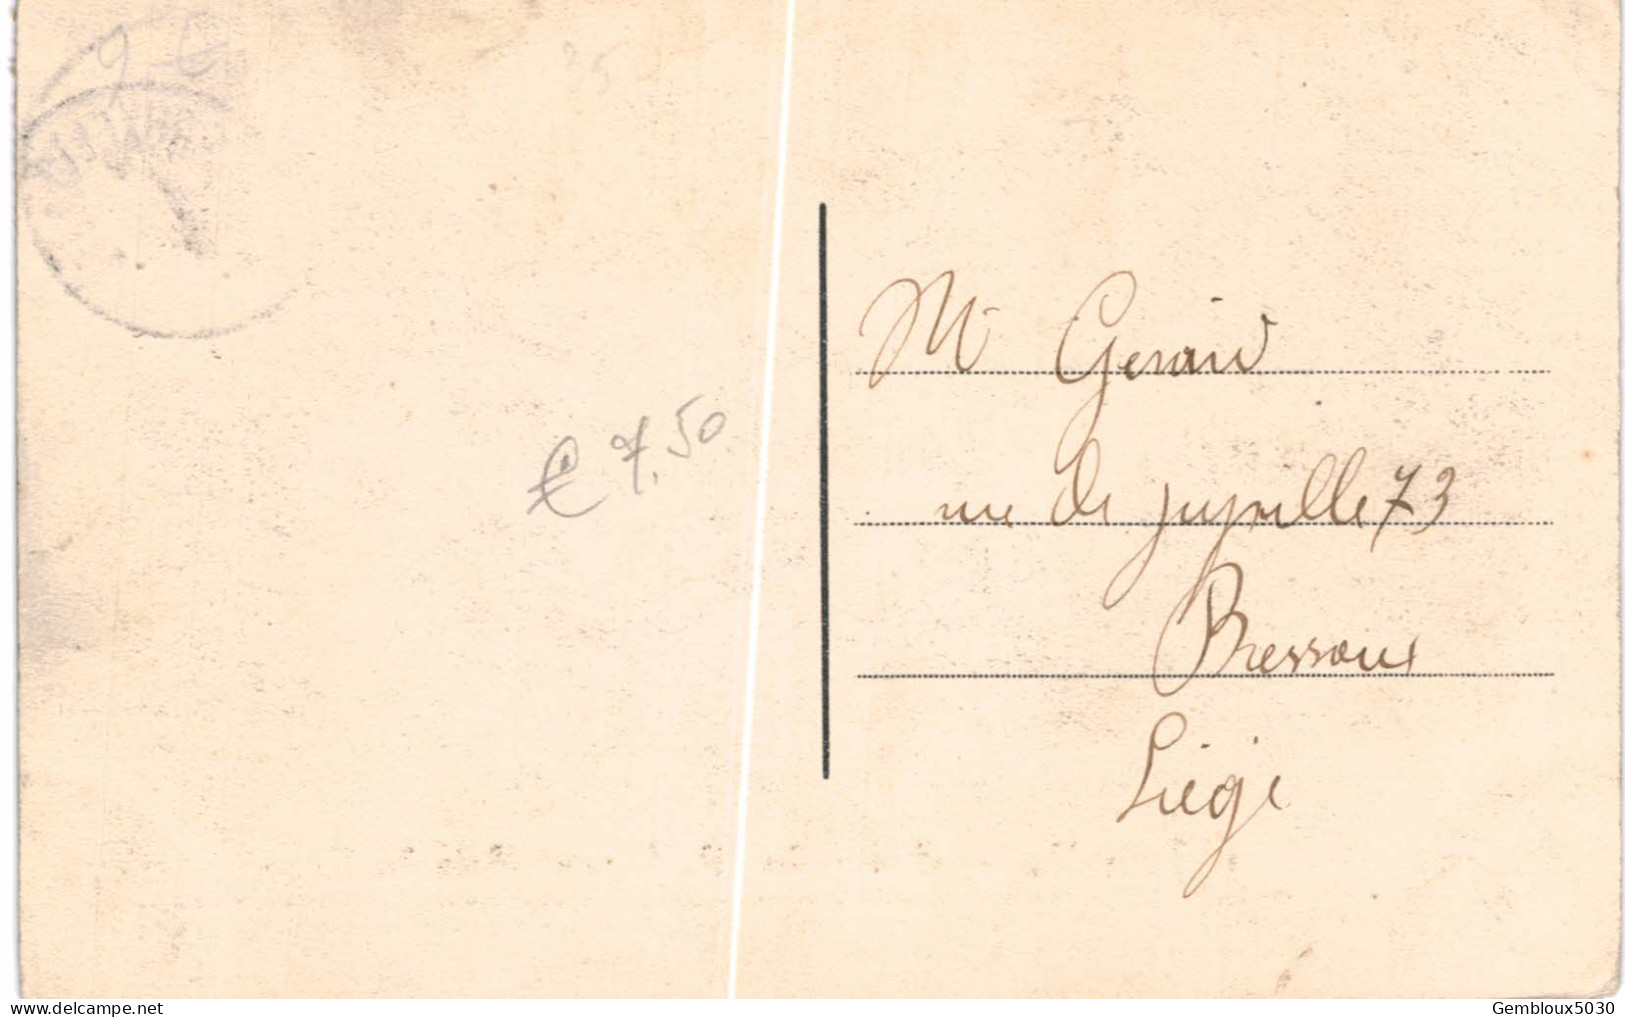 9 €
25
€ 7,50
Mr Gerard
rue de jupille 73
Bressoux
Liège
www.delcampe.net
Gembloux5030